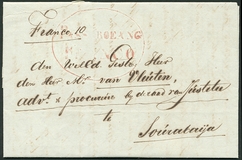 Franco 10
den Weled Gestr. Heer
den Heer Mr. van Vleuten,
advt. & procureur by den raad van Justitie
te
Soerabaija